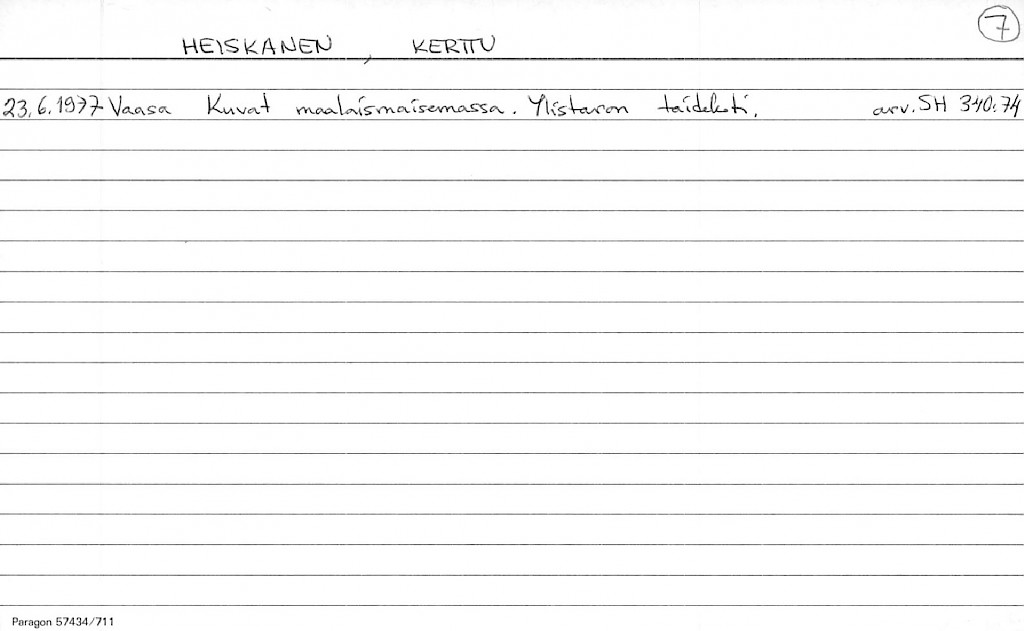 7
HEISKANEN, KERTTU
23.6.1977 Vaasa Kuvat maalaismaisemassa. Ylistaron taidelehti. arv. SH 340:74
Paragon 57434/711